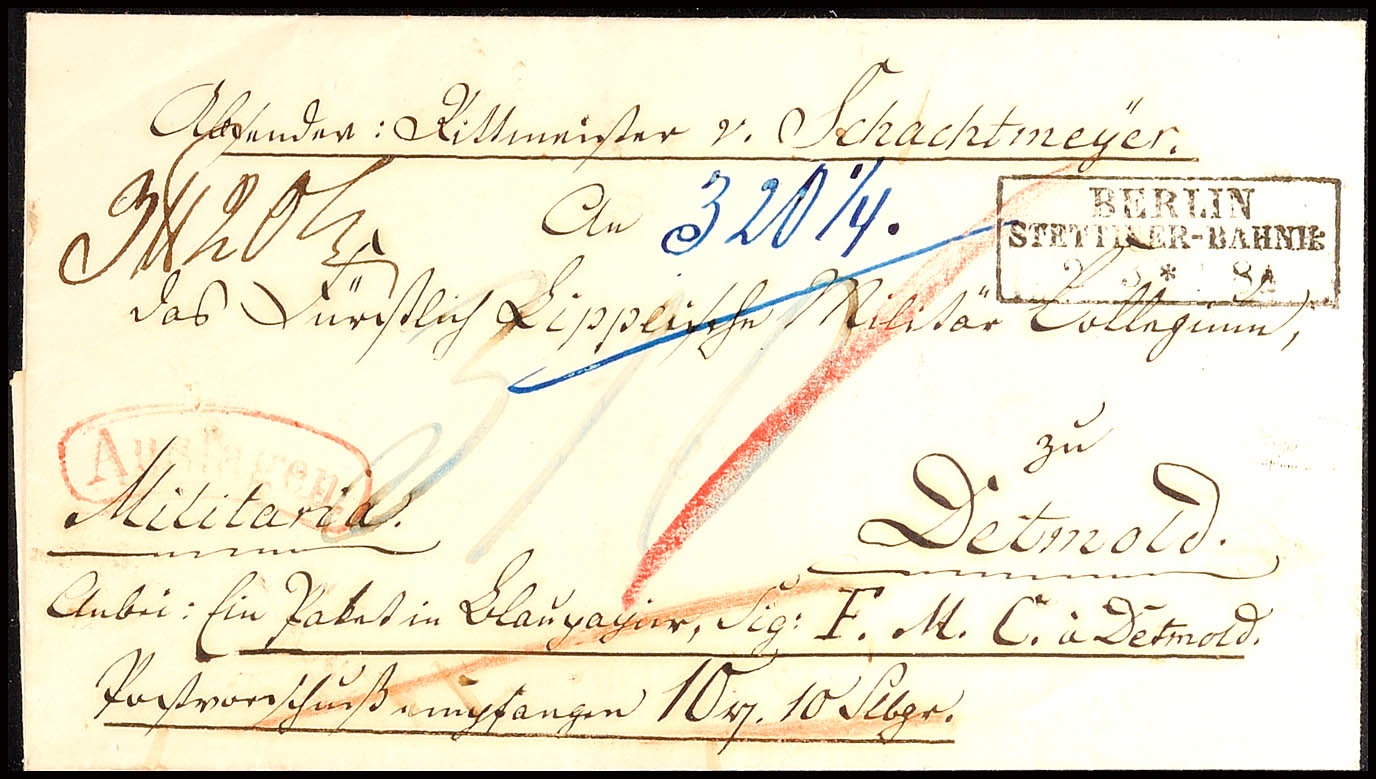 Absender: Rittmeister v. Schachtmeÿer.
An
320 1/4.
BERLIN
STETTINER-BAHNH:
das Fürstlich Lippische Militär Collegium,
Auslagen
zu
Militaria.
Detmold.
Anbei: Ein Paket in Blaupapier, Sig: F. M. C. à Detmold.
Postvorschuß empfangen 10 rt. 10 Slbgr.